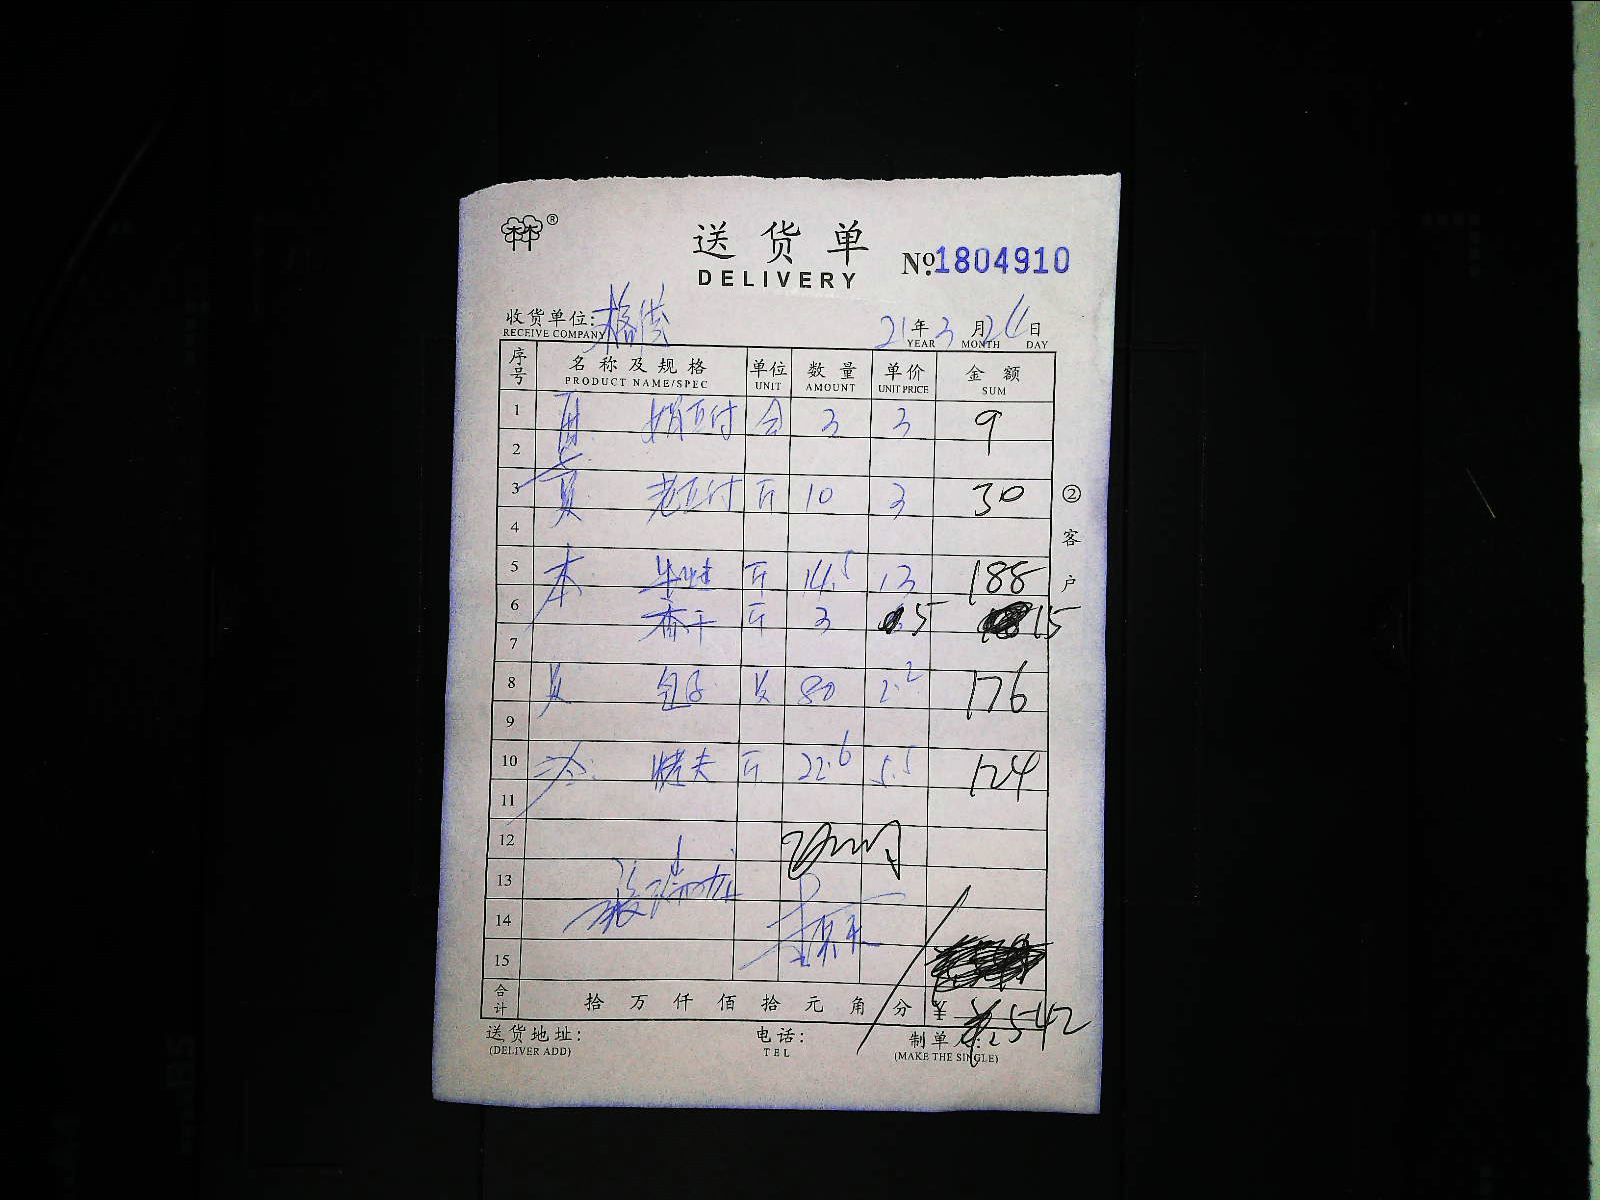 ®
送货单
DELIVERY
№1804910
收货单位:
RECEIVE COMPANY
21年3月24日
YEAR MONTH DAY
序号 名称及规格 单位 数量 单价 金额
PRODUCT NAME/SPEC UNIT AMOUNT UNIT PRICE SUM
1 3 3 9
2
3 老豆付 斤 10 3 30
4
5 本 斤 14.5 13 188
6 香干 斤 3 5 15
7
8 包子 80 2.2 176
9
10 冷 烤夫 斤 22.6 5.5 124
11
12
13
14
15
合计 拾万仟佰拾元角分 ¥ 542
② 客户
送货地址: 电话: 制单人:
(DELIVER ADD) TEL (MAKE THE SINGLE)